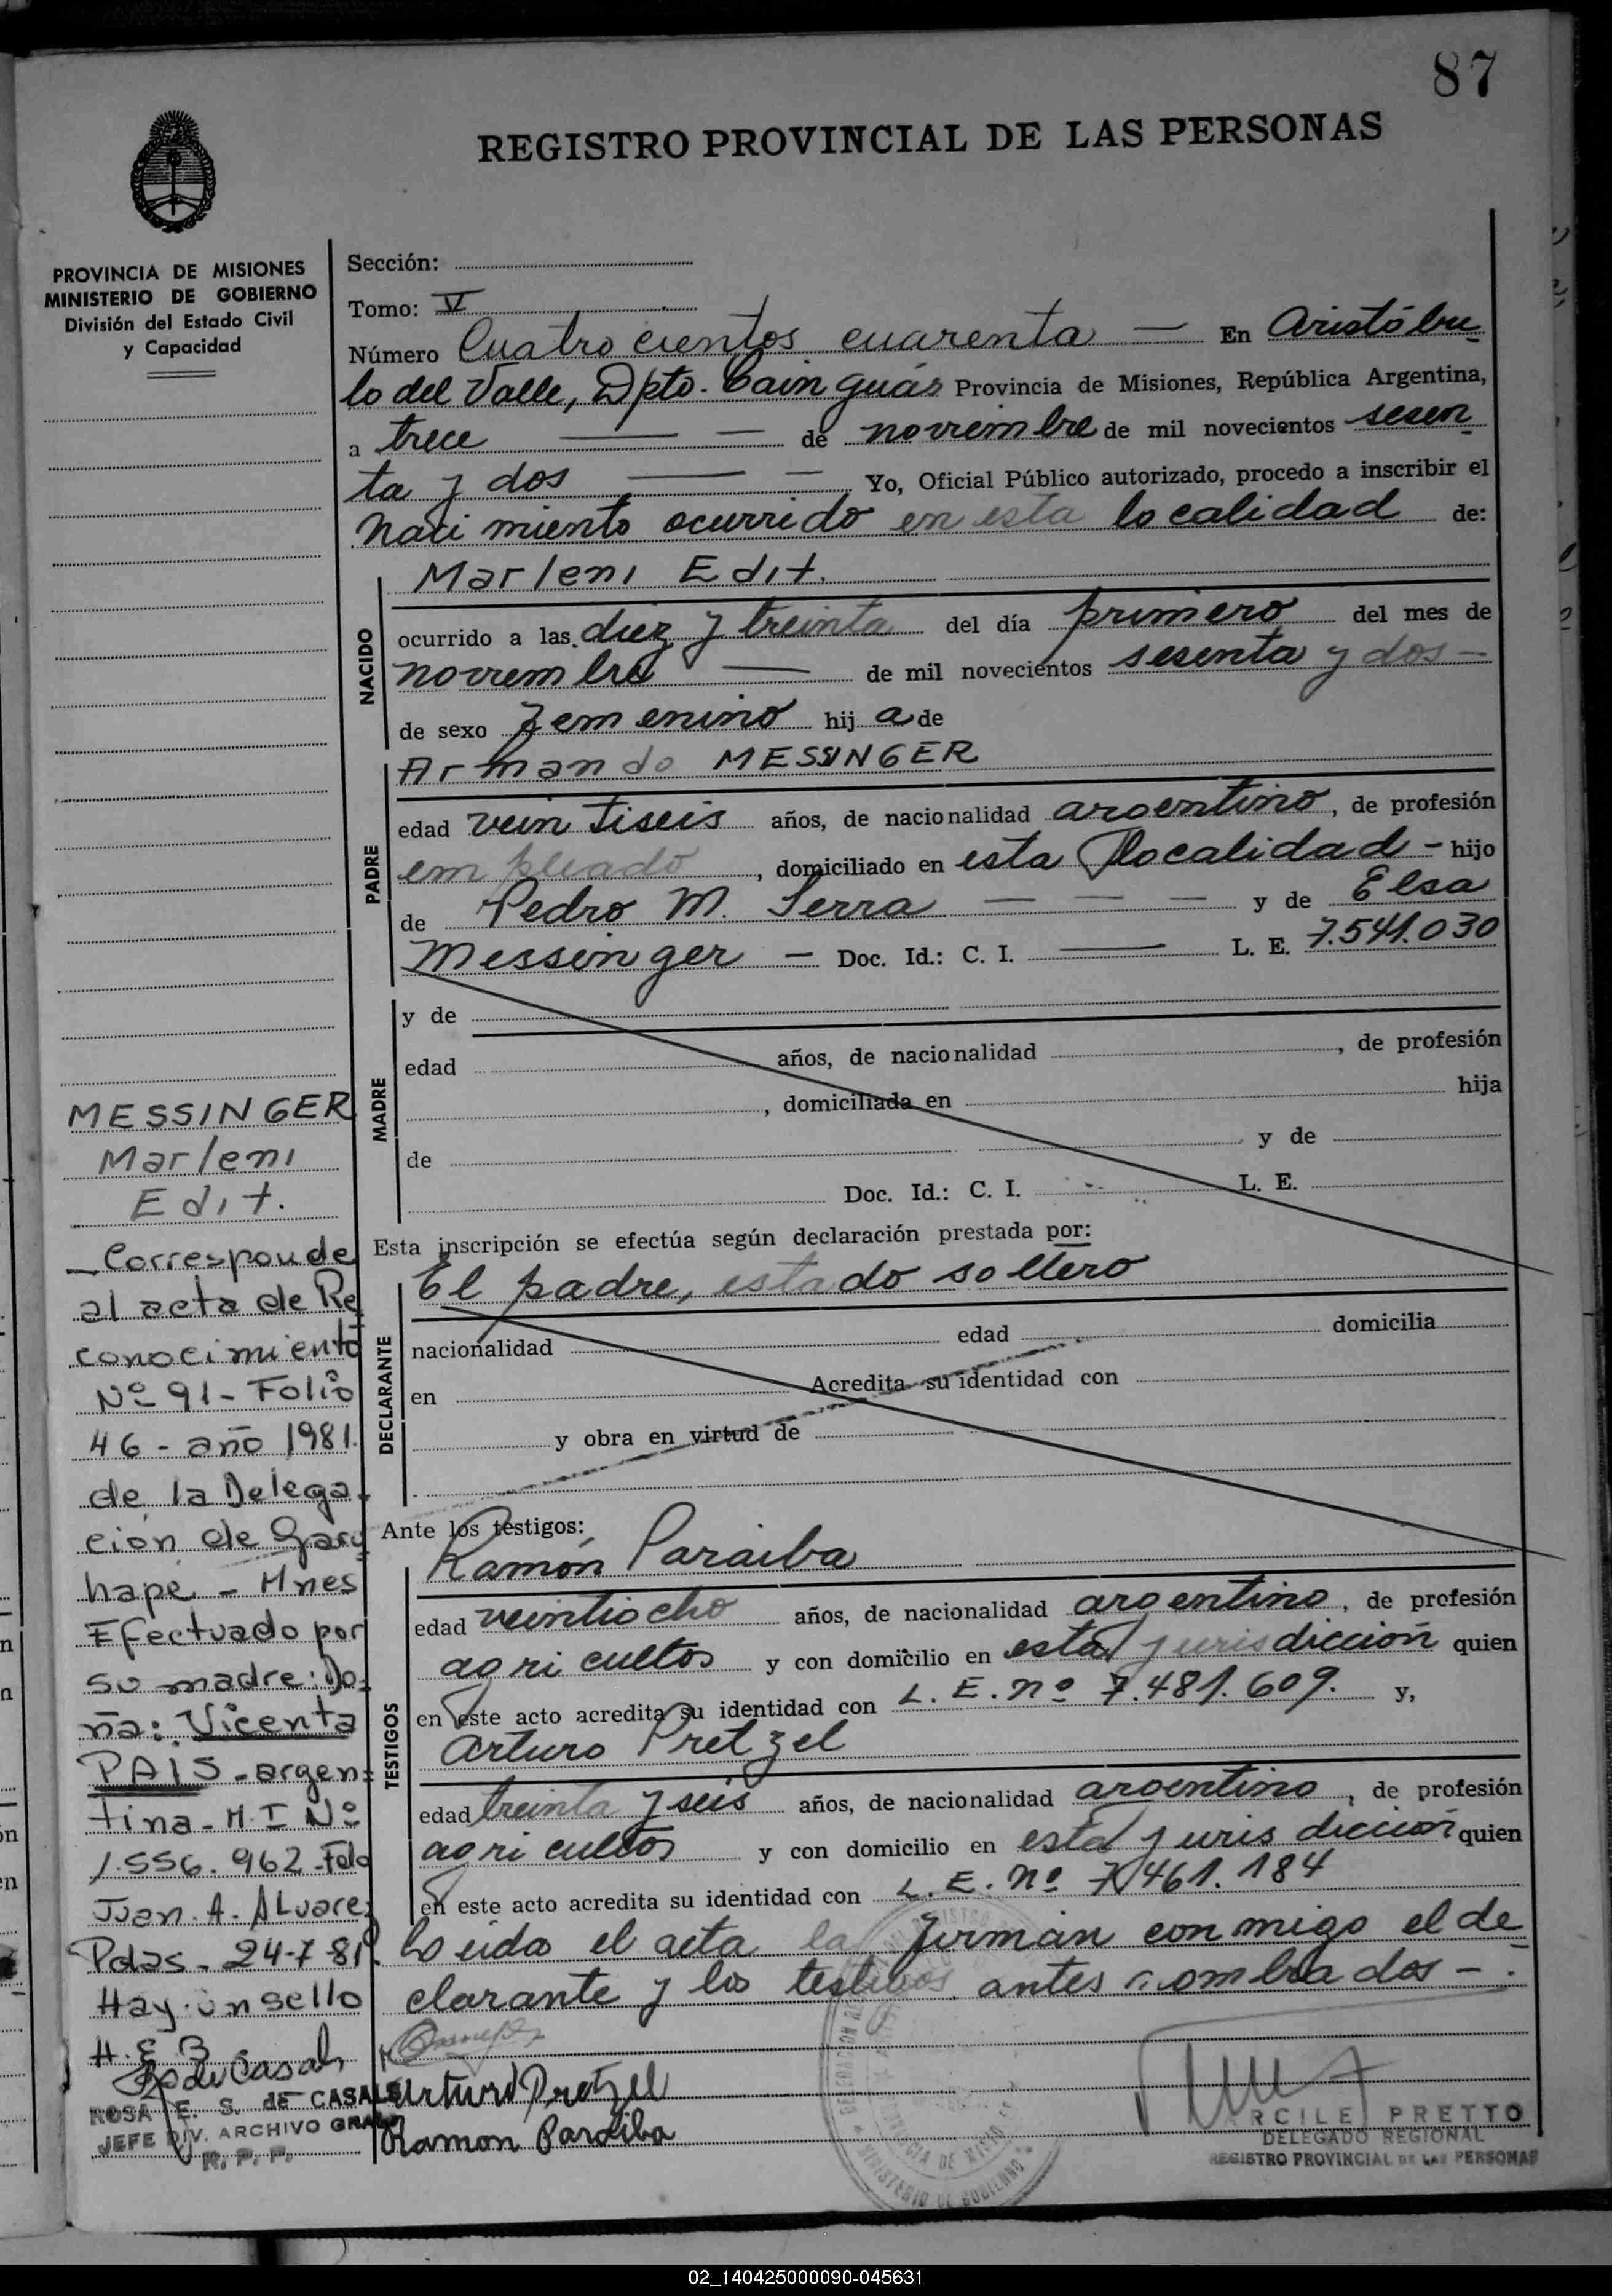 87
REGISTRO PROVINCIAL DE LAS PERSONAS
PROVINCIA DE MISIONES
MINISTERIO DE GOBIERNO
División del Estado Civil
y Capacidad
Sección:
Tomo: V
Número Cuatrocientos cuarenta — En Aristóbu
lo del Valle, Dpto. Cainguás Provincia de Misiones, República Argentina,
a trece — — de noviembre de mil novecientos sesen
ta y dos — — Yo, Oficial Público autorizado, procedo a inscribir el
nacimiento ocurrido en esta localidad de:
NACIDO
Marleni Edit.
ocurrido a las diez y treinta del día primero del mes de
noviembre — de mil novecientos sesenta y dos —
de sexo femenino hij a de
PADRE
Armando MESSINGER
edad veintiseis años, de nacionalidad argentino, de profesión
empleado, domiciliado en esta localidad - hijo
de Pedro M. Serra — — — y de Elsa
Messinger — Doc. Id.: C. I. — L. E. 7.541.030
MADRE
y de
edad años, de nacionalidad , de profesión
, domiciliada en hija
de y de
Doc. Id.: C. I. L. E.
Esta inscripción se efectúa según declaración prestada por:
DECLARANTE
El padre, estado soltero
nacionalidad edad domicilia
en Acredita su identidad con
y obra en virtud de
Ante los testigos:
TESTIGOS
Ramón Paraiba
edad veintiocho años, de nacionalidad argentino, de profesión
agricultor y con domicilio en esta jurisdicción quien
en este acto acredita su identidad con L. E. nº 7.481.609. y,
Arturo Pretzel
edad treinta y seis años, de nacionalidad argentino, de profesión
agricultor y con domicilio en esta jurisdicción quien
en este acto acredita su identidad con L. E. nº 7.461.184
Leída el acta la firman conmigo el de
clarante y los testigos antes nombrados — .
Arturo Pretzel
Ramon Paraiba
ARCILE PRETTO
DELEGADO REGIONAL
REGISTRO PROVINCIAL DE LAS PERSONAS
MESSINGER
Marleni
Edit.
_Corresponde
al acta de Re
conocimiento
Nº 91 - Folio
46 - año 1981.
de la Delega
ción de Garu
hapé - Mnes
Efectuado por
su madre: Do=
ña: Vicenta
PAIS - argen=
tina - M. I Nº
1.556.962 - Fdo
Juan. A. ALvarez
Pdas - 24-7-81
Hay un sello
H. E B
ROSA E. S. de CASALS
JEFE DIV. ARCHIVO GRAL
R. P. P.
02_140425000090-045631